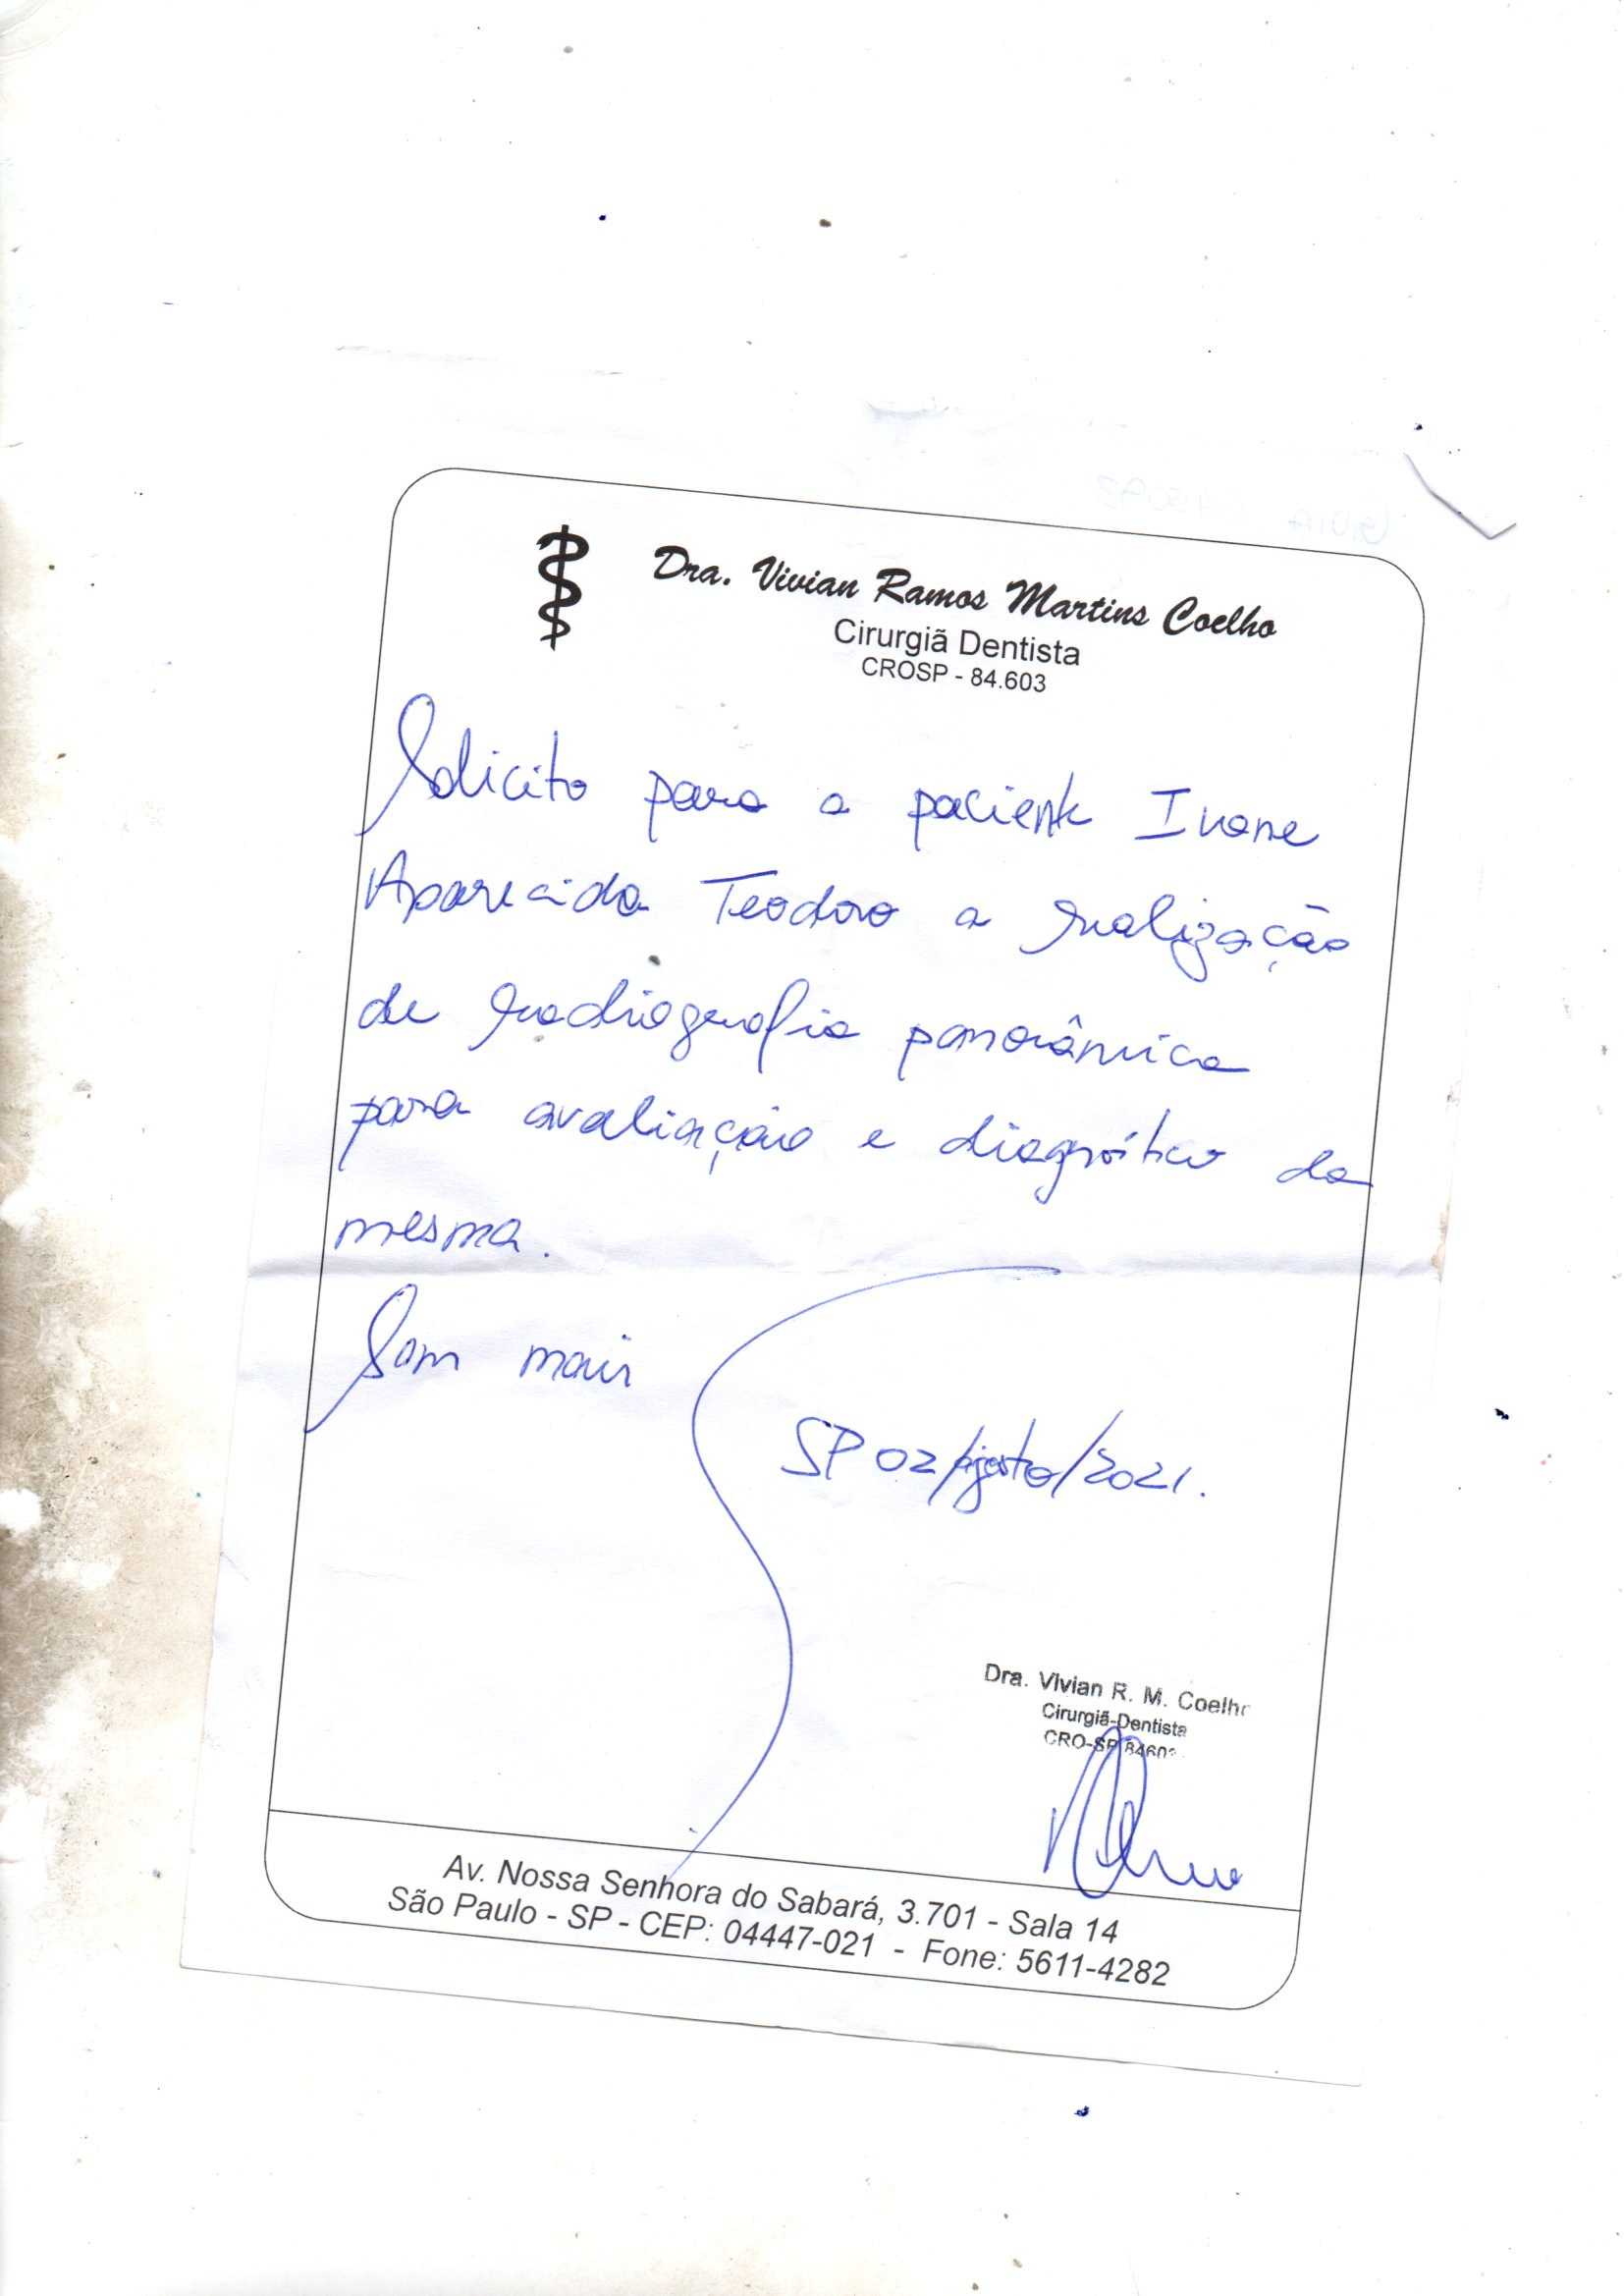 Dra. Vivian Ramos Martins Coelho
Cirurgiã Dentista
CROSP - 84.603
Solicito para a paciente Ivone
Aparecida Teodoro a realização
de radiografia panorâmica
para avaliação e diagnóstico da
mesma.
Sem mais
SP 02/agosto/2021.
Dra. Vivian R. M. Coelho
Cirurgiã-Dentista
CRO-SP 84603
Av. Nossa Senhora do Sabará, 3.701 - Sala 14
São Paulo - SP - CEP: 04447-021 - Fone: 5611-4282